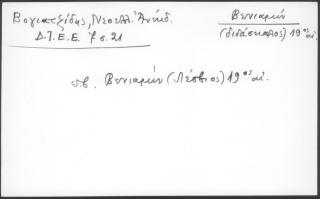 Βογιατζίδης, Νεοελλ. Ἀνάλ.
Δ.Ι.Ε.Ε. 7 σ. 21
Βενιαμίν
(διδάσκαλος) 19ος αἰ.
πβ. Βενιαμίν (Λέσβιος) 19ος αἰ.